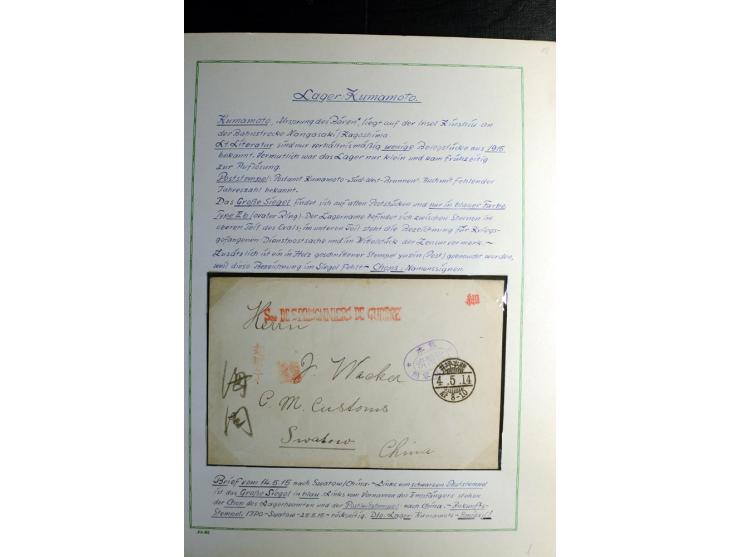 Lager: Kumamoto.
Kumamoto, "Ursprung des Bären", liegt auf der Insel Kiushiu an
der Bahnstrecke Nangasaki/Kagoshima.
Lt. Literatur sind nur verhältnismäßig wenige Belegstücke aus 1915
bekannt. Vermutlich war das Lager nur klein und kam frühzeitig
zur Auflösung.
Poststempel: Postamt Kumamoto "Süd-West-Brunnen". Auch mit fehlender
Jahreszahl bekannt.
Das Große Siegel findet sich auf allen Poststücken und nur in blauer Farbe
(ovaler Ring). Der Lagername befindet sich zwischen Sternen im
oberen Teil des Ovals; im unteren Teil steht die Bezeichnung für Kriegs-
gefangenen Dienstpostsache und im Mittelstück der Zensurvermerk.-
Zusätzlich ist ein in Holz geschnittener Stempel yubin (Post) gebraucht worden,
weil diese Bezeichnung im Siegel fehlt.- Chops: Namenssignen.
Sce DE PRISONNIERS DE GUERRE
Herrn
J. Wacker
4.5.14
C. M. Customs
Swatow
China
Brief vom 14.5.15 nach Swatow/China.- Links vom schwarzen Poststempel
ist das Große Siegel in blau. Links vom Vornamen des Empfängers stehen
der Chop des Lagerbeamten und der nach China.- Ankunfts-
Stempel: Swatow - 25.5.15 - rückseitig. Lager Kumamoto